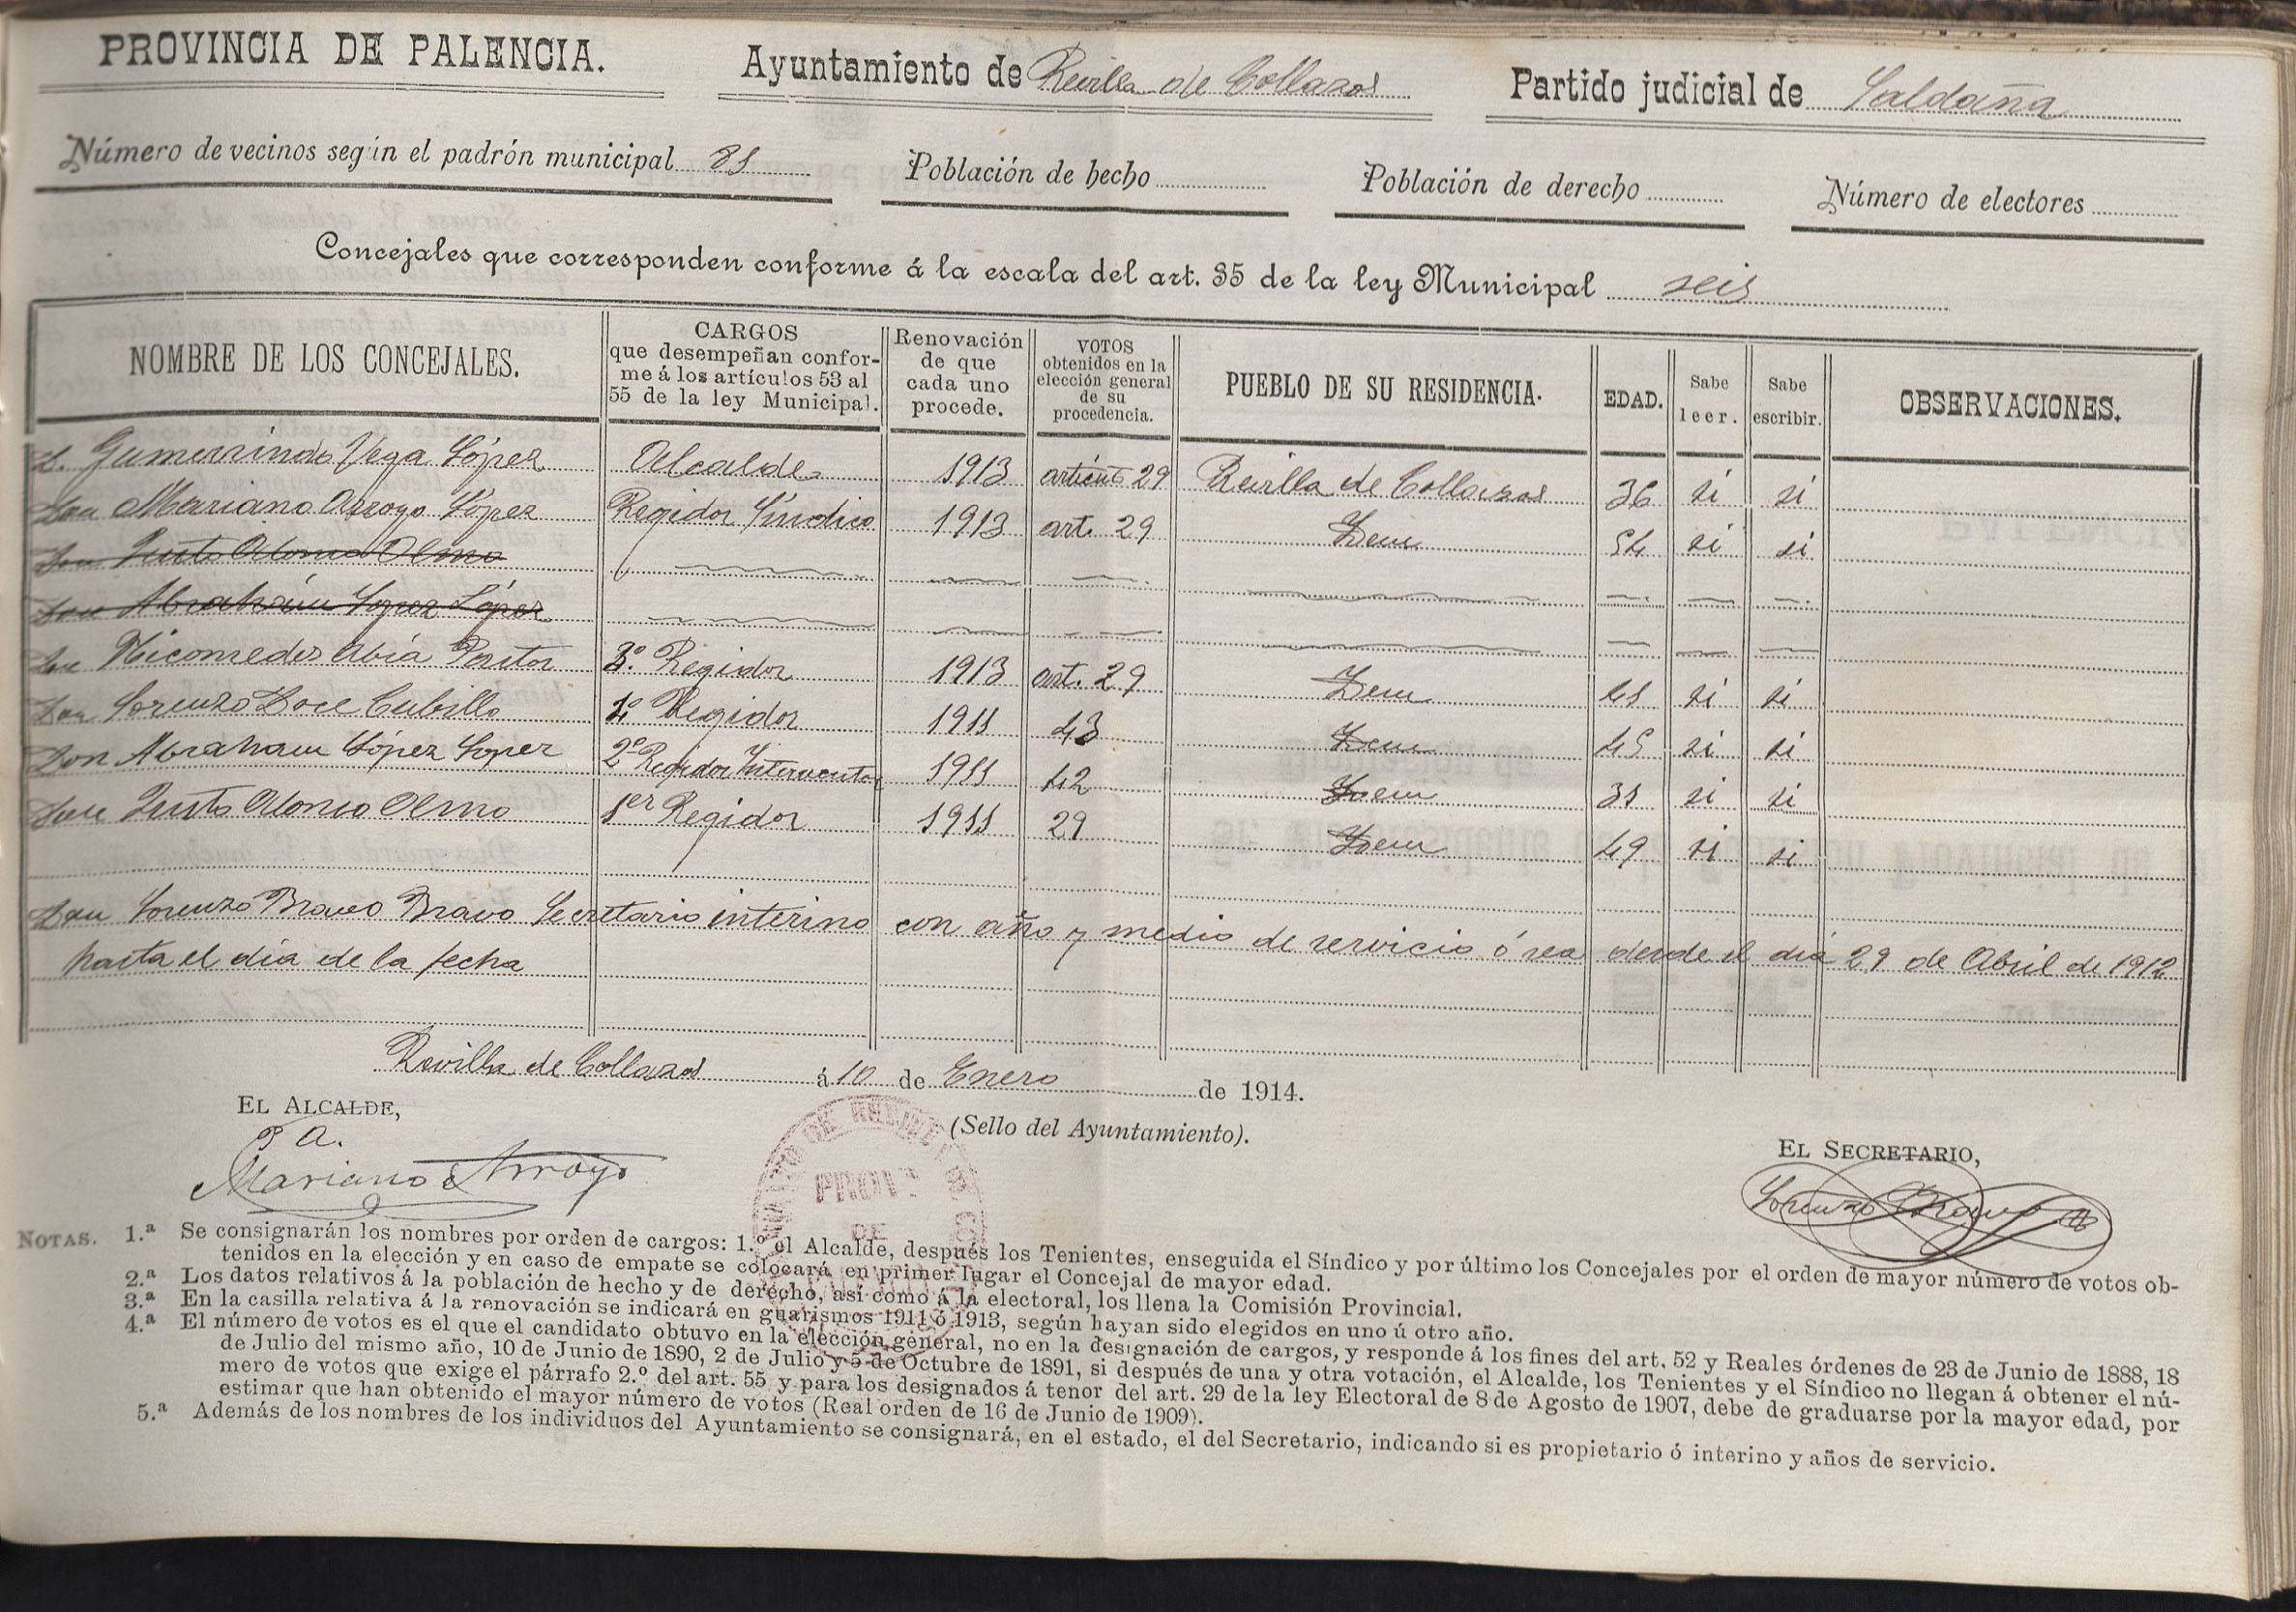 PROVINCIA DE PALENCIA. Ayuntamiento de Revilla de Collazos Partido judicial de Saldaña
Número de vecinos según el padrón municipal 81 Población de hecho Población de derecho Número de electores
Concejales que corresponden conforme á la escala del art. 35 de la ley Municipal seis
NOMBRE DE LOS CONCEJALES. CARGOS que desempeñan conforme á los artículos 53 al 55 de la ley Municipal. Renovación de que cada uno procede. VOTOS obtenidos en la elección general de su procedencia. PUEBLO DE SU RESIDENCIA. EDAD. Sabe leer. Sabe escribir. OBSERVACIONES.
D. Gumersindo Vega López Alcalde 1913 artículo 29 Revilla de Collazos 36 si si
Don Mariano Arroyo López Regidor Síndico 1913 art. 29 Idem 54 si si
Don Justo Alonso Olmo
Don Abrahám López López
Don Nicomedes Abia Pastor 3º Regidor 1913 art. 29 Idem 41 si si
Don Lorenzo Doce Cubillo 1º Regidor 1911 43 Idem 45 si si
Don Abraham López López 2º Regidor Interventor 1911 42 Idem 31 si si
Don Justo Alonso Olmo 1er Regidor 1911 29 Idem 49 si si
Don Lorenzo Bravo Bravo Secretario interino con año y medio de servicio ó sea desde el dia 29 de Abril de 1912
hasta el dia de la fecha
Revilla de Collazos á 10 de Enero de 1914.
EL ALCALDE,
P A.
Mariano Arroyo
(Sello del Ayuntamiento).
PROV.ª
DE
EL SECRETARIO,
Lorenzo Bravo
NOTAS. 1.ª Se consignarán los nombres por orden de cargos: 1.º el Alcalde, después los Tenientes, enseguida el Síndico y por último los Concejales por el orden de mayor número de votos ob-
tenidos en la elección y en caso de empate se colocará en primer lugar el Concejal de mayor edad.
2.ª Los datos relativos á la población de hecho y de derecho, así como á la electoral, los llena la Comisión Provincial.
3.ª En la casilla relativa á la renovación se indicará en guarismos 1911 ó 1913, según hayan sido elegidos en uno ú otro año.
4.ª El número de votos es el que el candidato obtuvo en la elección general, no en la designación de cargos, y responde á los fines del art. 52 y Reales órdenes de 23 de Junio de 1888, 18
de Julio del mismo año, 10 de Junio de 1890, 2 de Julio y 5 de Octubre de 1891, si después de una y otra votación, el Alcalde, los Tenientes y el Síndico no llegan á obtener el nú-
mero de votos que exige el párrafo 2.º del art. 55 y para los designados á tenor del art. 29 de la ley Electoral de 8 de Agosto de 1907, debe de graduarse por la mayor edad, por
estimar que han obtenido el mayor número de votos (Real orden de 16 de Junio de 1909).
5.ª Además de los nombres de los individuos del Ayuntamiento se consignará, en el estado, el del Secretario, indicando si es propietario ó interino y años de servicio.